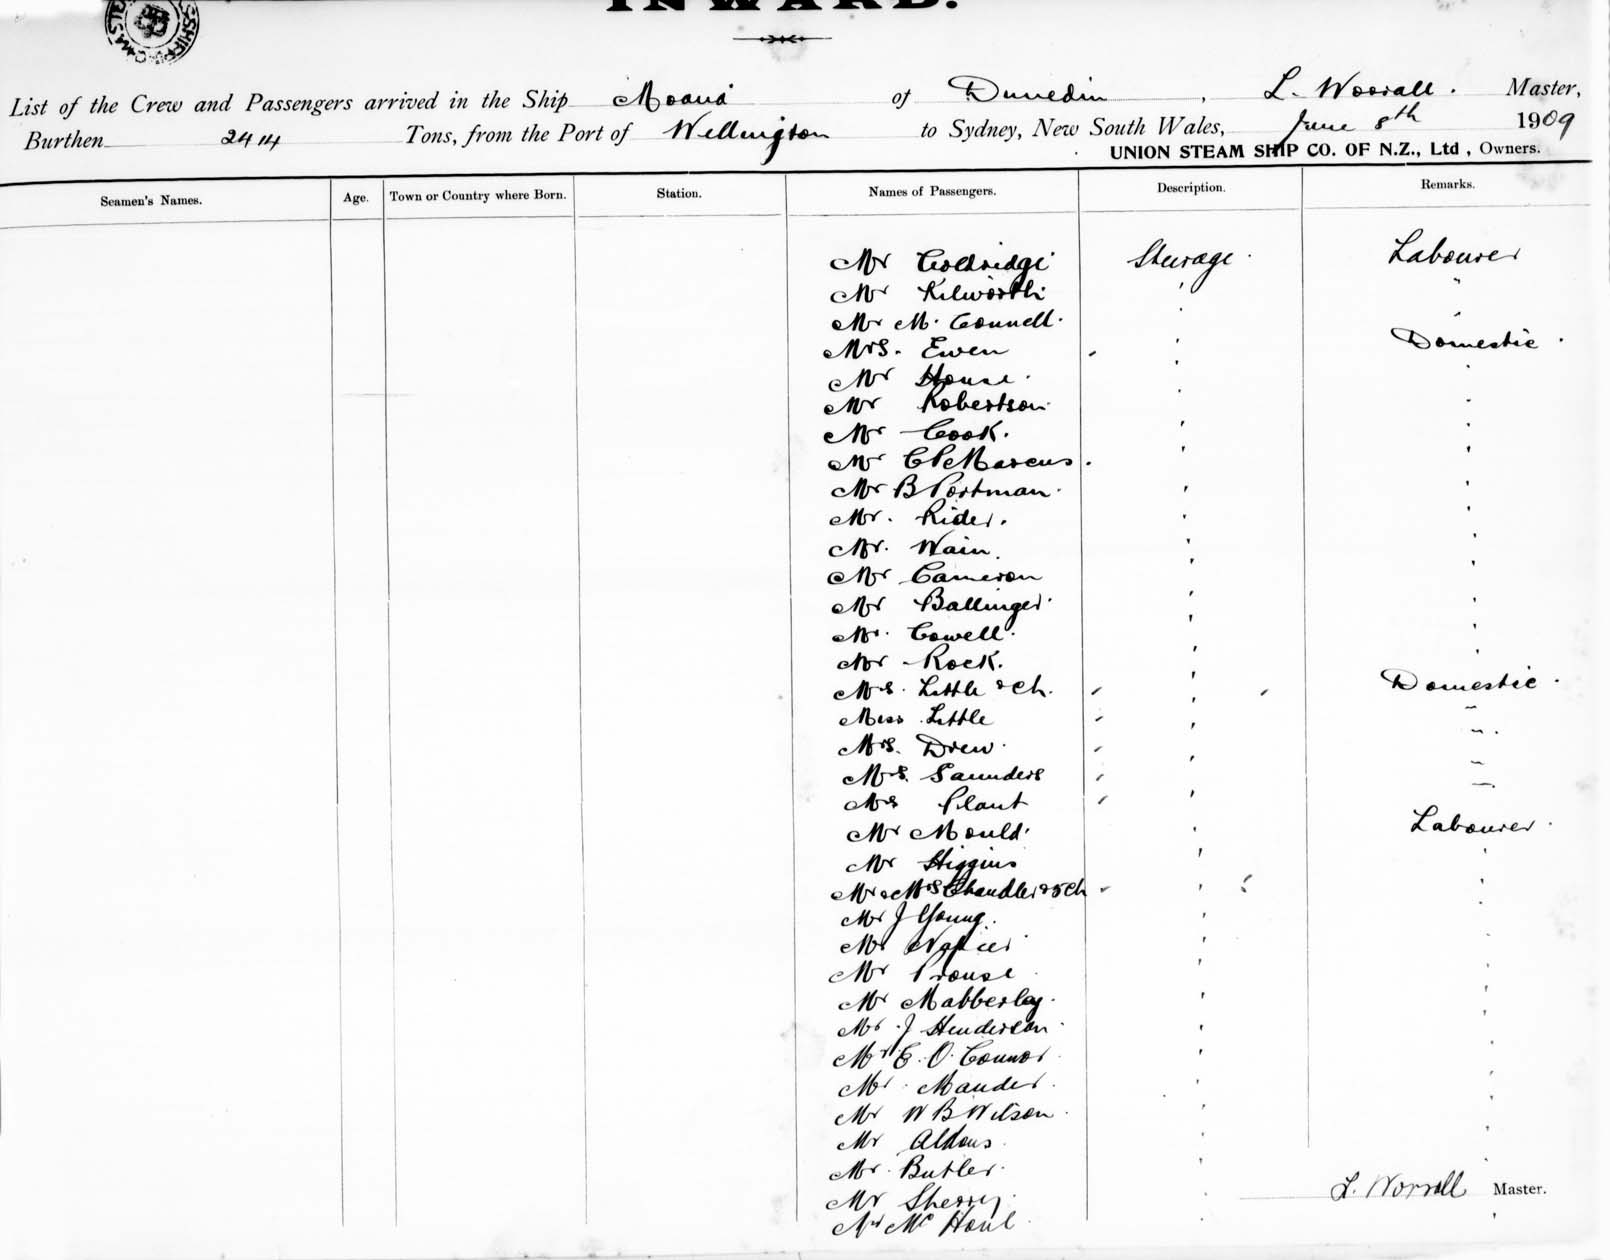 INWARD.
List of the Crew and Passengers arrived in the Ship Moana of Dunedin, L. Worrall. Master,
Burthen 2414 Tons, from the Port of Wellington to Sydney, New South Wales, June 8th 1909
UNION STEAM SHIP CO. OF N.Z., Ltd, Owners.
Seamen's Names. Age. Town or Country where Born. Station. Names of Passengers. Description. Remarks.
Mr Coldridge Steerage Labourer
Mr Kilworth "
Mr M. Connell. "
Mrs. Ewen Domestic
Mr House.
Mr Robertson
Mr Cook.
Mr Marcus.
Mr B Portman.
Mr. Rider.
Mr. Wain.
Mr Cameron
Mr Ballinger
Mr. Cowell.
Mr Rock.
Mrs. Little & Ch. Domestic
Miss Little "
Mrs. Drew "
Mrs. Saunders "
Mrs Plant "
Mr Mould Labourer
Mr Higgins
Mr & Mrs Chandler & 5 Ch
Mr J Young.
Mr Napier
Mr Prouse
Mr Mabberley.
Mr. J Henderson
Mr E. O. Connor
Mr. Mander.
Mr W B Wilson.
Mr Aldous
Mr. Butler.
Mr Sherry. L. Worrall Master.
Mr Mc